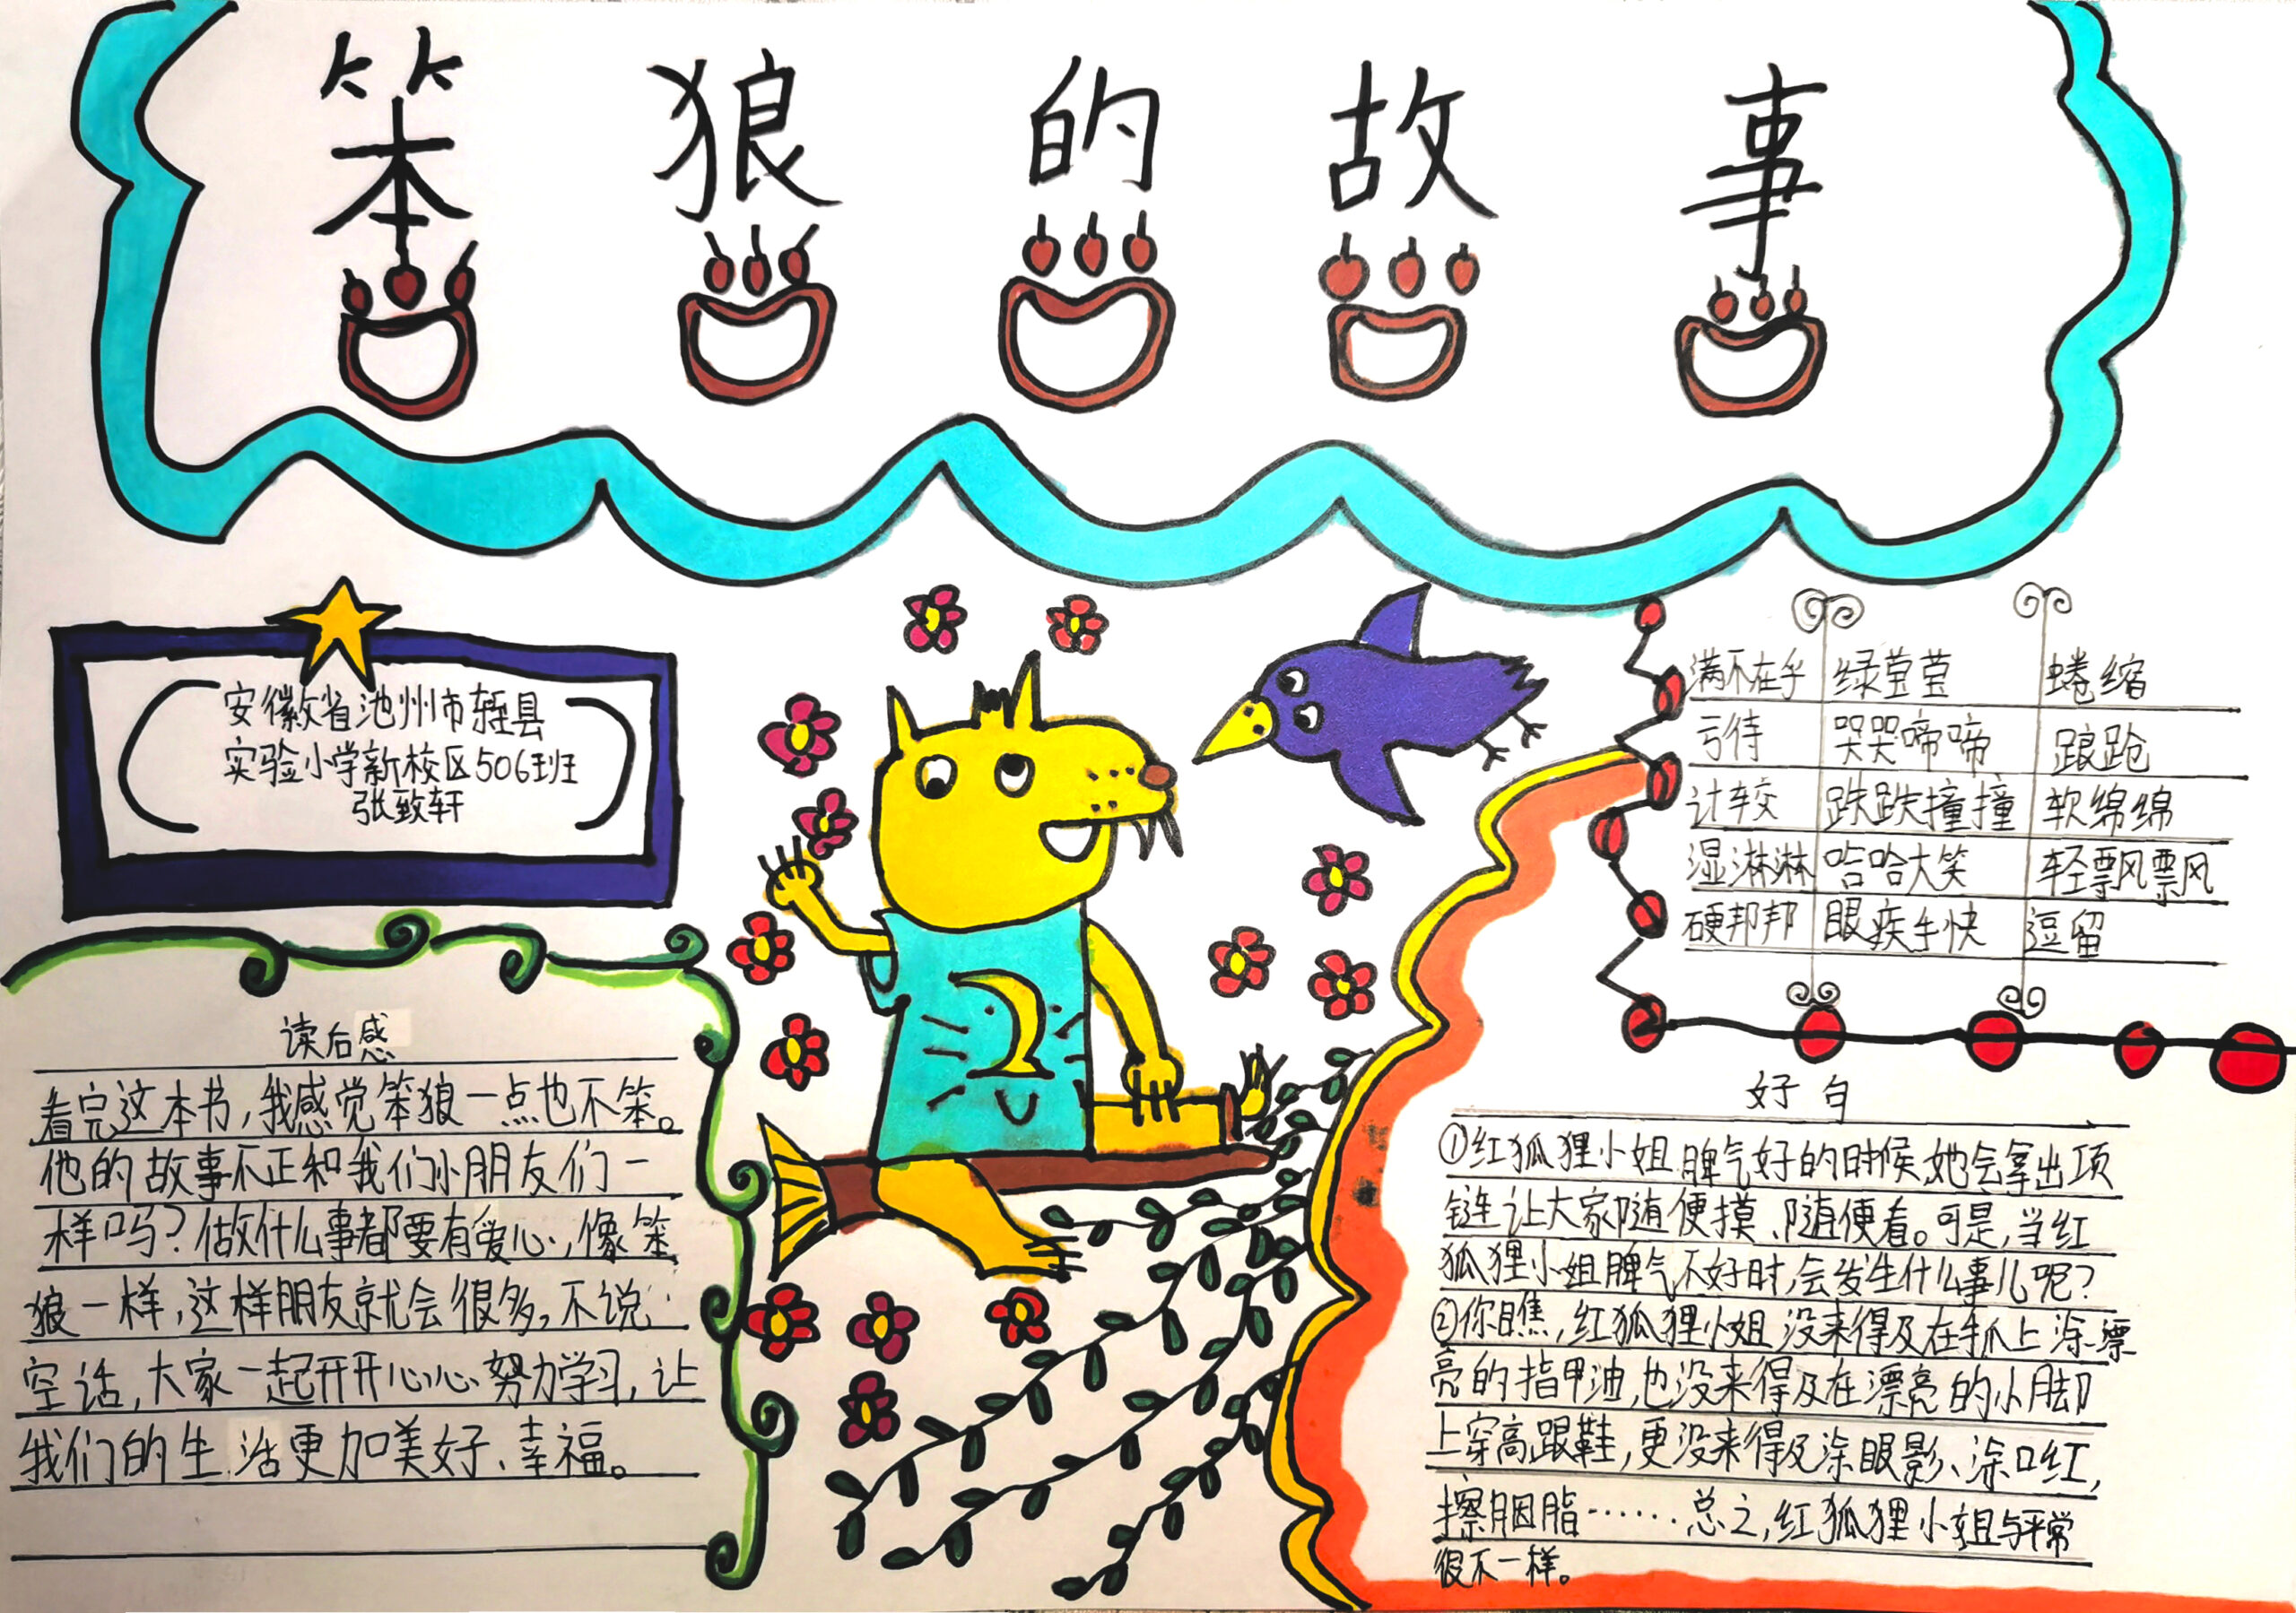 笨狼的故事
安徽省池州市东至县
实验小学新校区506班
张致轩
满不在乎 绿莹莹 蜷缩
亏待 哭哭啼啼 踉跄
计较 跌跌撞撞 软绵绵
湿淋淋 哈哈大笑 轻飘飘
硬邦邦 眼疾手快 逗留
读后感
看完这本书，我感觉笨狼一点也不笨。
他的故事不正和我们小朋友们一
样吗？做什么事都要有爱心，像笨
狼一样，这样朋友就会很多，不说
空话，大家一起开开心心努力学习，让
我们的生活更加美好、幸福。
好句
①红狐狸小姐脾气好的时候，她会拿出项
链让大家随便摸、随便看。可是，当红
狐狸小姐脾气不好时，会发生什么事儿呢？
②你瞧，红狐狸小姐没来得及在手爪上涂漂
亮的指甲油，也没来得及在漂亮的小脚
上穿高跟鞋，更没来得及涂眼影、涂口红，
擦胭脂……总之，红狐狸小姐与平常
很不一样。